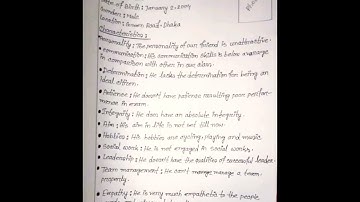 Date of Birth: January 2-2004
Gender: Male
Location: Road-Dhaka
Characteristics:
Personality: The personality of our friend is unattractive.
• Communication: His communication skills is below average
in comparison with other in our class.
• Determination: He lacks the determination for being an
ideal officer.
• Patience: He doesn't have patience resulting poor perfor-
mance in exam.
• Integrity: He does have an absolute integrity.
• Aim: His aim in life is not set till now
• Hobbies: His hobbies are cycling, playing and music.
• Social work: He is not engaged in social works.
• Leadership: He doesn't have the qualities of successful leader.
• Team management: He can't manage a team
properly.
• Empathy: He is very much empathetic to the people